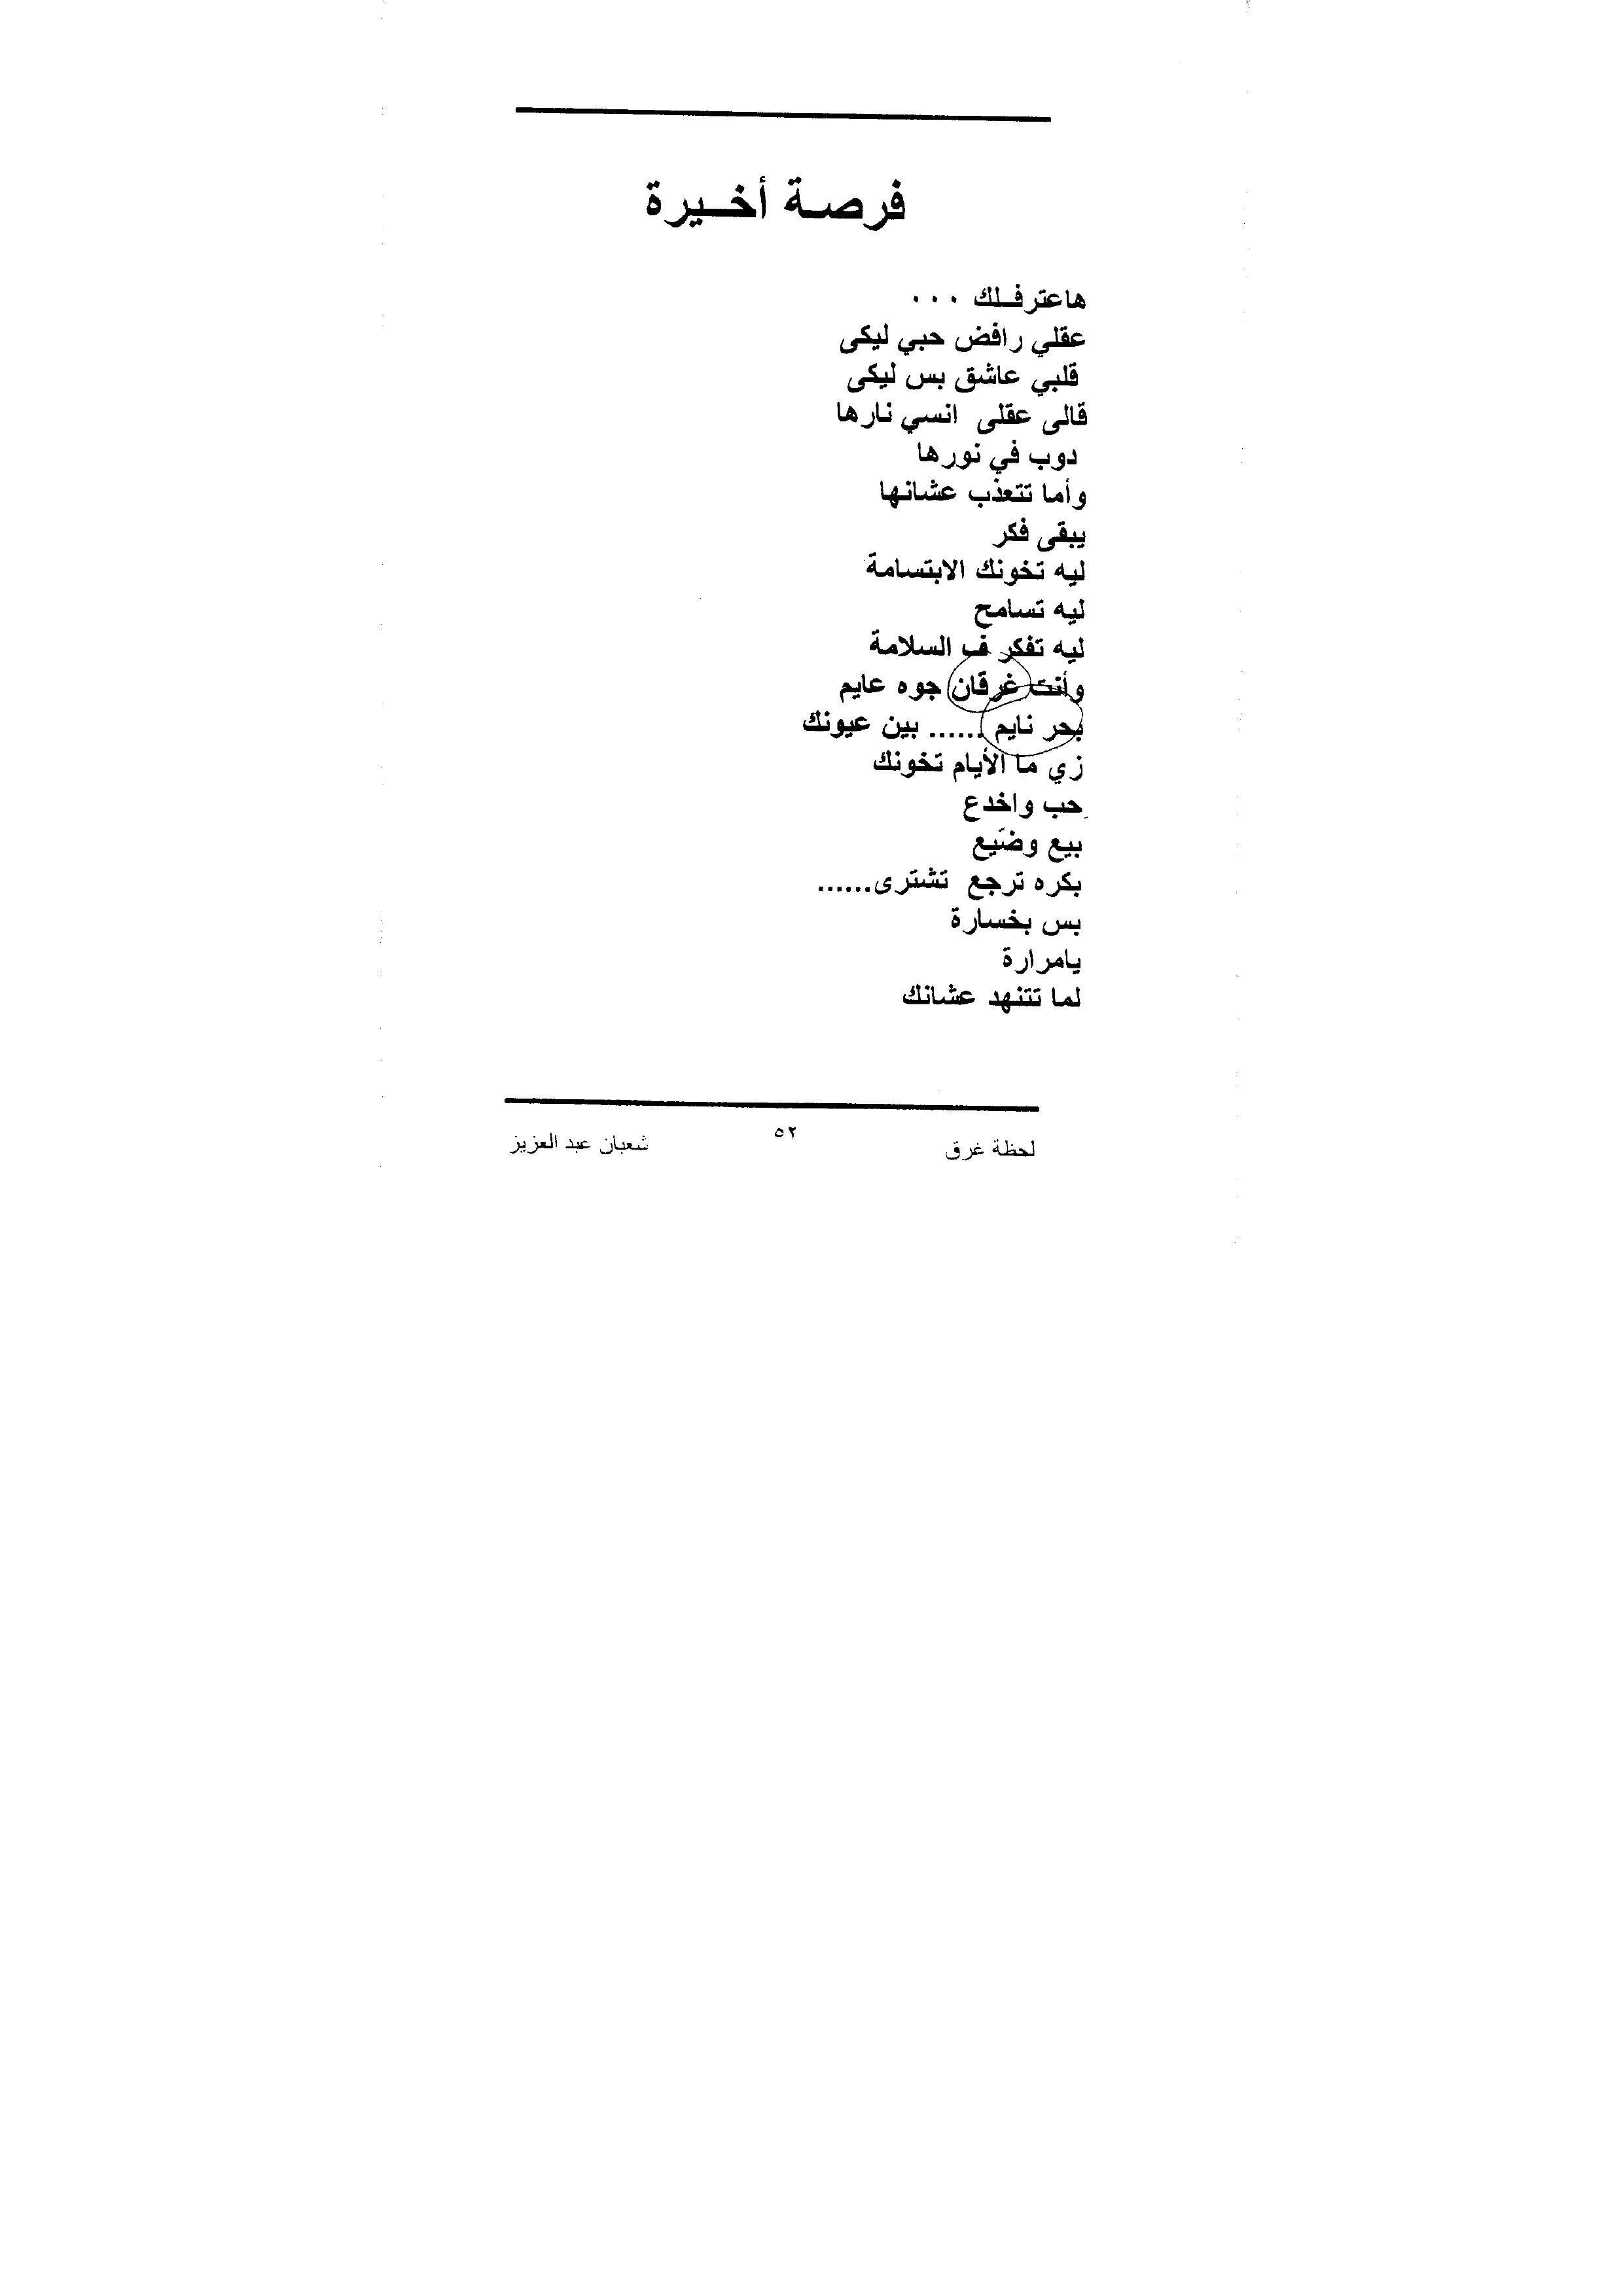 فرصـة أخـــيرة
هاعترفــلك ...
عقلي رافض حبي ليكى
قلبي عاشق بس ليكى
قالى عقلى انسي نارها
دوب في نورها
وأما تتعذب عشانها
يبقى فكر
ليه تخونك الابتسامة
ليه تسامح
ليه تفكر ف السلامة
وأنت غرقان جوه عايم
بحر نايم ...... بين عيونك
زي ما الأيام تخونك
حب واخدع
بيع وضَيع
بكره ترجع تشترى......
بس بخسارة
يامرارة
لما تتنهد عشانك
لحظة غرق ٥٢ شعبان عبد العزيز